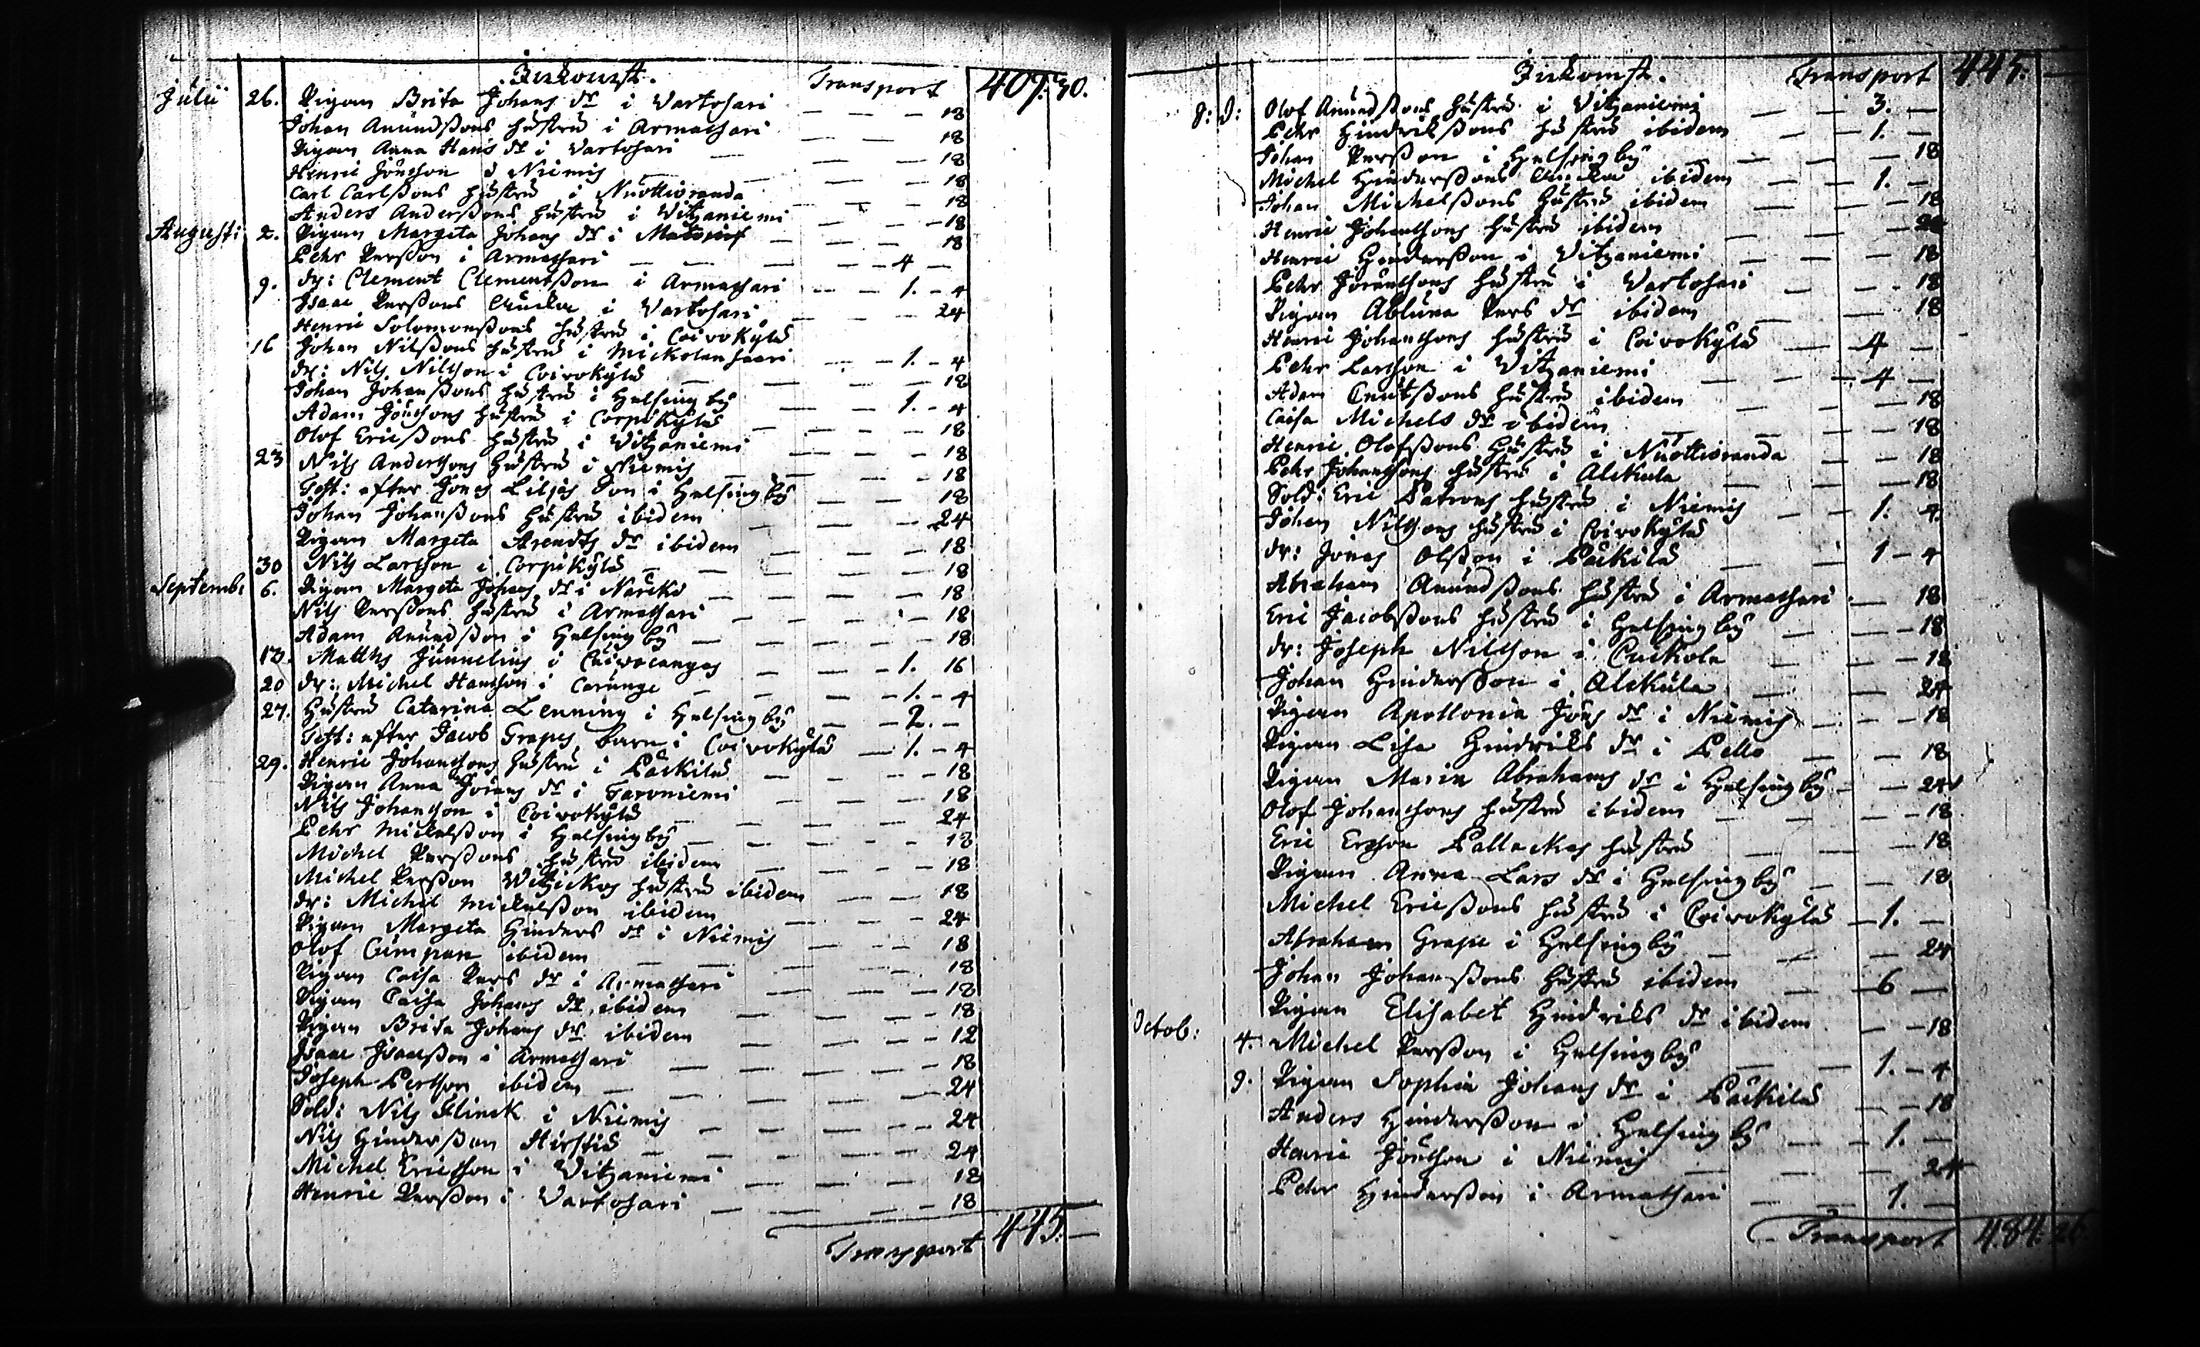 Inkomst. Transport 407. 30.
Julii 26. Pigan Brita Johans dr i Vartosari — — — 18
Johan Anundßons hustru i Armassari — — 18
Pigan Anna Hans dr i Vartosari — — — 18
Henric Jönsson i Niemis — — — 18
Carl Carlßons hustru i Nuottioranda — — 18
Anders Anderßons hustru i Vitzaniemi — — 18
Augusti 2. Pigan Margeta Johans dr i — — 18
Pehr Perßon i Armassari — — — 4 —
9. dr: Clement Clementßon i Armassari — — 1. — 4
Isaac Perßons Änka i Vartosari — — — 24
Henric Solomonßons hustru i Coivokylä
16 Johan Nilßons hustru i Mickolansaari — — 1. — 4
dr: Nils Nilsson i Coivokylä — — — 18
Johan Johanßons hustru i Helsingby — — 1. — 4
Adam Jönsons hustru i Corpikylä — — — 18
Olof Ericßons hustru i Vitzaniemi — — — 18
23 Nils Andersons hustru i Niemis — — — 18
Test: efter Jonas Liljas Son i Helsingby — — — 18
Johan Johanßons hustru ibidem — — — 24
Pigan Margeta Arendts dr ibidem — — — 18
30 Nils Larsson i Corpikylä — — — 18
Septemb: 6. Pigan Margeta Johans dr i Närckä — — 18
Nils Perßons hustru i Armassari — — — 18
Adam Anundßon i Helsingby — — — 18
13. Matths Junnelius i Coivocangas — — 1. 16
20 dr: Michel Hansson i Carunge — — 1. — 4
27. hustru Catarina Lenning i Helsingby — — 2. —
Test: efter Jacob Grapes barn i Coivokylä — 1. — 4
29. Henric Johansons hustru i Päckilä — — — 18
Pigan Anna Jörans dr i Taroniemi — — — 18
Nils Johansson i Coivokylä — — — 24
Pehr Mickelßon i Helsingby — — — 18
Michel Perßons hustru ibidem — — — 18
Michel Perßon Witzickos hustru ibidem — — 18
dr: Michel Mickelßon ibidem — — — 24
Pigan Margeta Hinders dr i Niemis — — 18
Olof Cimpan ibidem — — — 18
Pigan Caisa Pers dr i Armassari — — — 18
Pigan Caisa Johans dr ibidem — — — 18
Pigan Brita Johans dr ibidem — — — 12
Isaac Isacßon i Armassari — — — 18
Joseph Persson ibidem — — — 24
Sold: Nils Flinck i Niemis — — — 24
Nils Hinderßon Hirstiö — — — 24
Michel Ericsson i Vitzaniemi — — — 18
Henric Perßon i Vartosari — — — 18
Transport 445. —
Inkomst. Transport 445. —
8: D: Olof Anundßons hustru i Vitzaniemi — — 3. —
Pehr Hindrikßons hustru ibidem — — 1. —
Johan Perßon i Helsingby — — — 18
Michel Hinderßons Änka ibidem — — 1. —
Johan Michelßons hustru ibidem — — — 18
Henric Johansons hustru ibidem — — — 24
Henric Hinderßon i Vitzaniemi — — — 18
Pehr Joransons hustru i Vartosari — — — 18
Pigan Abluna Pers dr ibidem — — — 18
Henric Johansons hustru i Coivokylä — 4 —
Pehr Larsson i Vitzaniemi — — 4 —
Adam Cnutßons hustru ibidem — — — 18
Caisa Michels dr ibidem — — — 18
Henric Olofßons hustru i Nuottioranda — — 18
Pehr Johansons hustru i Alckula — — — 18
Sold: Eric Patrons hustru i Niemis — — 1. 4.
Johan Nilsons hustru i Coivokylä
dr: Jonas Olßon i Päckilä — — 1 — 4
Abraham Anundßons hustru i Armassari — 18
Eric Jacobßons hustru i Helsingby — — — 18
dr: Joseph Nilsson i Cuckola — — — 18
Johan Hinderßon i Alckula — — — 24
Pigan Apollonia Jöns dr i Niemis — — — 18
Pigan Lisa Hindriks dr i Pello — — 18
Pigan Maria Abrahams dr i Helsingby — — 24
Olof Johansons hustru ibidem — — — 18.
Eric Ersson Pallackas hustru — — — 18
Pigan Anna Lars dr i Helsingby — — — 18
Michel Ericßons hustru i Coivokylä — 1. —
Abraham Grape i Helsingby — — — 24
Johan Johanßons hustru ibidem — — 6 —
Pigan Elisabet Hindriks dr ibidem — — 18
Octob: 4. Michel Perßon i Helsingby — — 1. — 4
9. Pigan Sophia Johans dr i Päckilä — — 18
Anders Hinderßon i Helsingby — — 1. —
Henric Jönsson i Niemis — — — 24
Pehr Hinderßon i Armassari — — 1. —
Transport 484. 26.